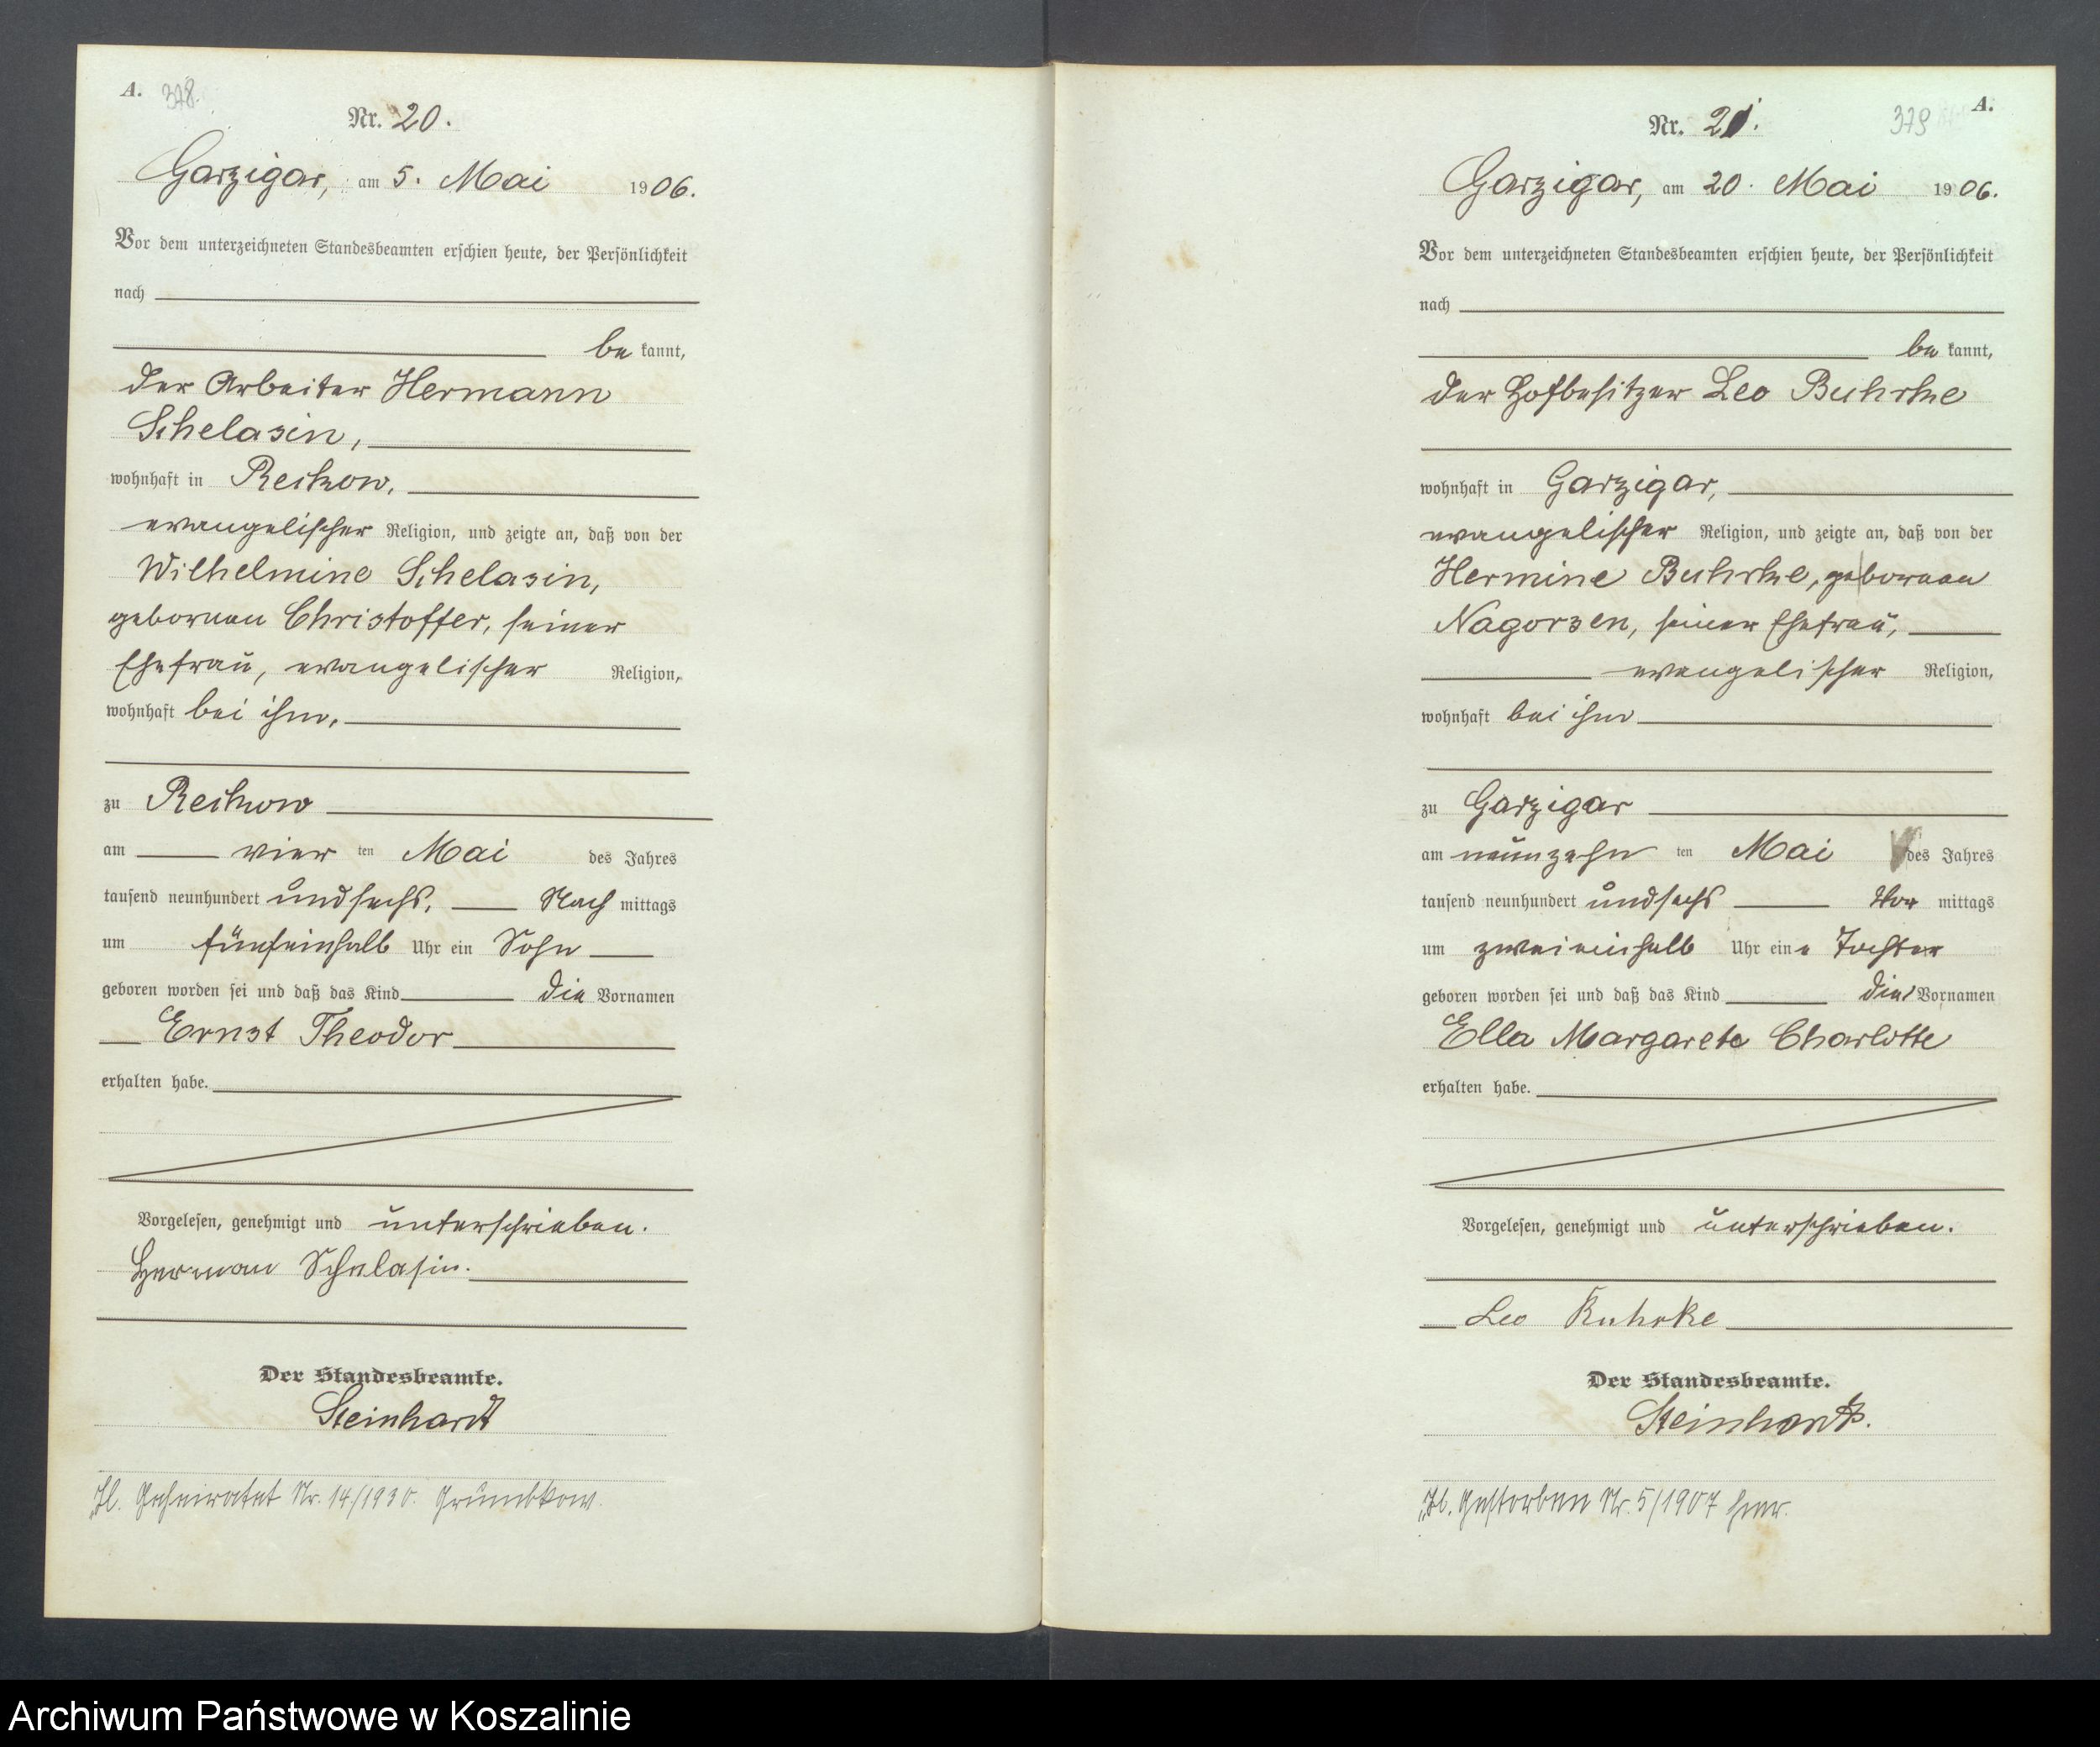 A. 378.
Nr. 20.
Garzigar, am 5. Mai 1906.
Vor dem unterzeichneten Standesbeamten erschien heute, der Persönlichkeit
nach
be kannt,
der Arbeiter Hermann
Schelasin,
wohnhaft in Reckow,
evangelischer Religion, und zeigte an, daß von der
Wilhelmine Schelasin,
geborenen Christoffer, seiner
Ehefrau, evangelischer Religion,
wohnhaft bei ihm,
zu Reckow
am vier ten Mai des Jahres
tausend neunhundert und sechs, Nach mittags
um fünfeinhalb Uhr ein Sohn
geboren worden sei und daß das Kind die Vornamen
Ernst Theodor
erhalten habe.
Vorgelesen, genehmigt und unterschrieben.
Herman Schelasin.
Der Standesbeamte.
Steinhardt
Geheiratet Nr. 14/1930. Grumbkow.
A.
379
Nr. 21.
Garzigar, am 20. Mai 1906.
Vor dem unterzeichneten Standesbeamten erschien heute, der Persönlichkeit
nach
be kannt,
der Hofbesitzer Leo Buhrke
wohnhaft in Garzigar,
evangelischer Religion, und zeigte an, daß von der
Hermine Buhrke, geborenen
Nagorsen, seiner Ehefrau,
evangelischer Religion,
wohnhaft bei ihm
zu Garzigar
am neunzehn ten Mai des Jahres
tausend neunhundert und sechs Vor mittags
um zweieinhalb Uhr eine Tochter
geboren worden sei und daß das Kind die Vornamen
Ella Margarete Charlotte
erhalten habe.
Vorgelesen, genehmigt und unterschrieben.
Leo Buhrke
Der Standesbeamte.
Steinhardt.
Gestorben Nr. 5/1907 hier.
Archiwum Państwowe w Koszalinie